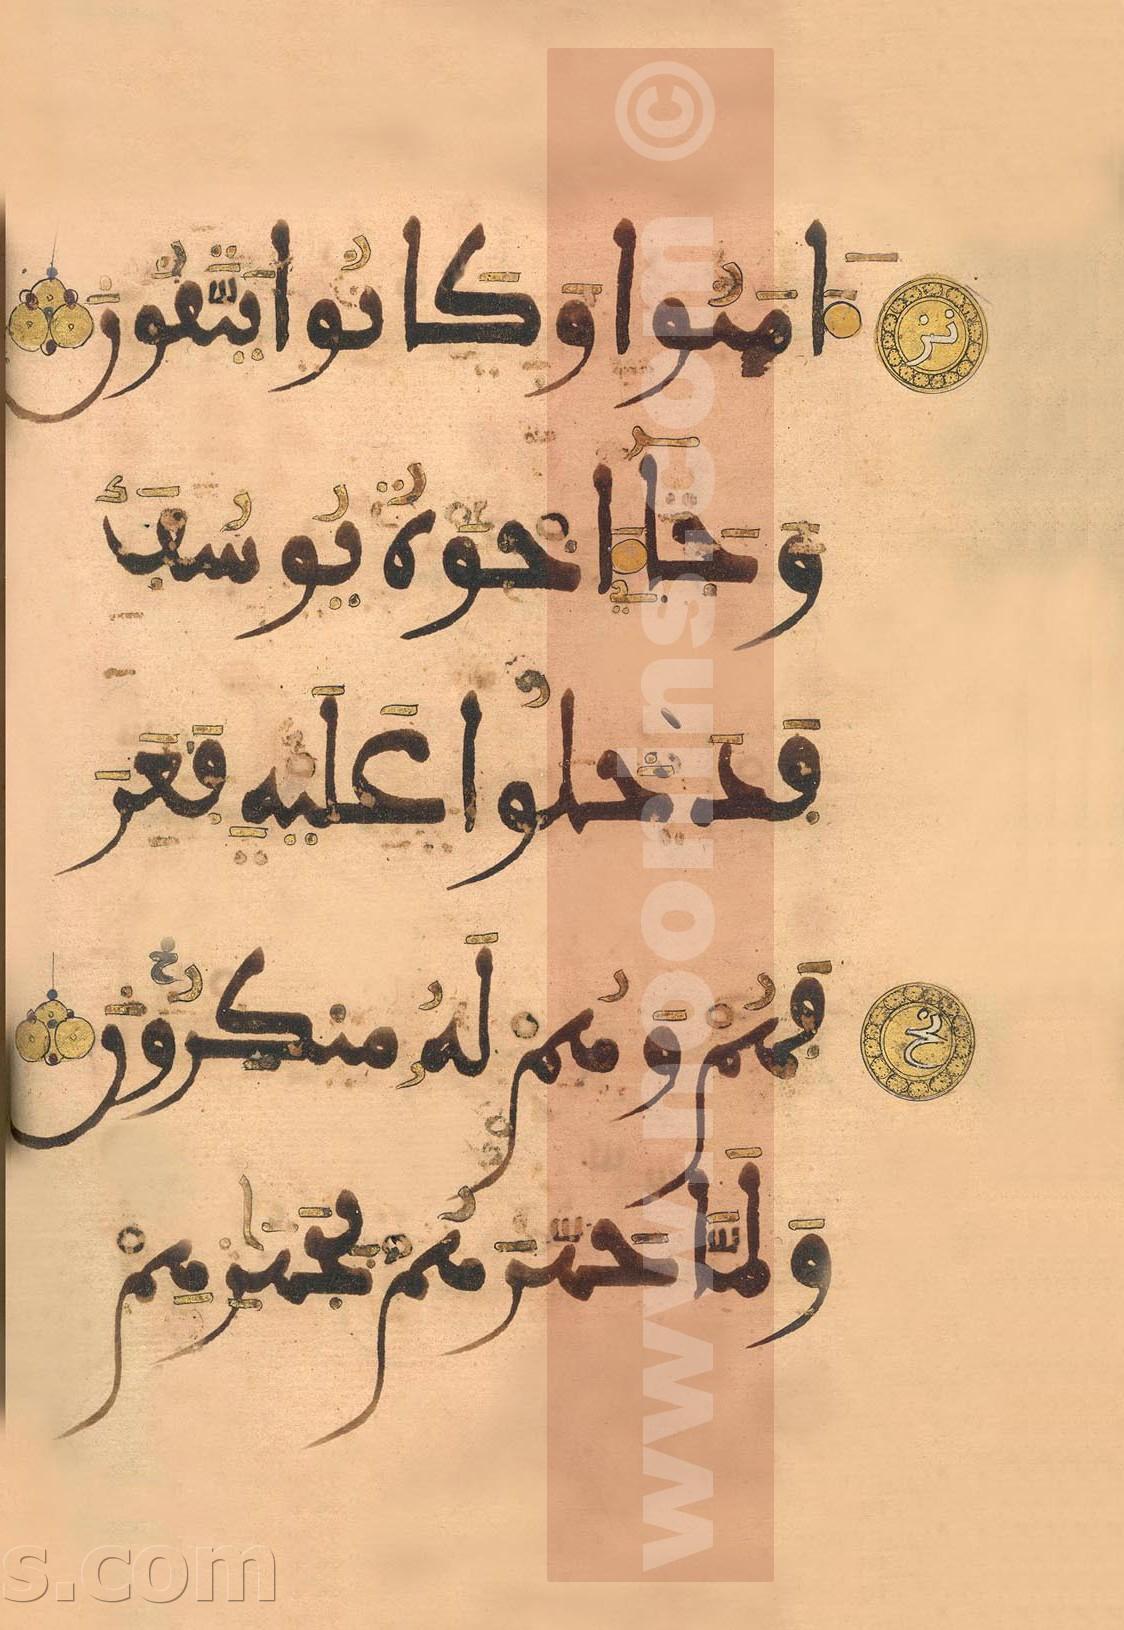 ءَامَنُوا وَكَانُوا يَتَّقُونَ
نز
وَجَآءَ إِخْوَةُ يُوسُفَ
فَدَخَلُوا عَلَيْهِ فَعَرَ
فَهُمْ وَهُمْ لَهُ مُنكِرُونَ
نح
وَلَمَّا جَهَّزَهُمْ بِجَهَازِهِمْ
www.noorins.com ©
s.com